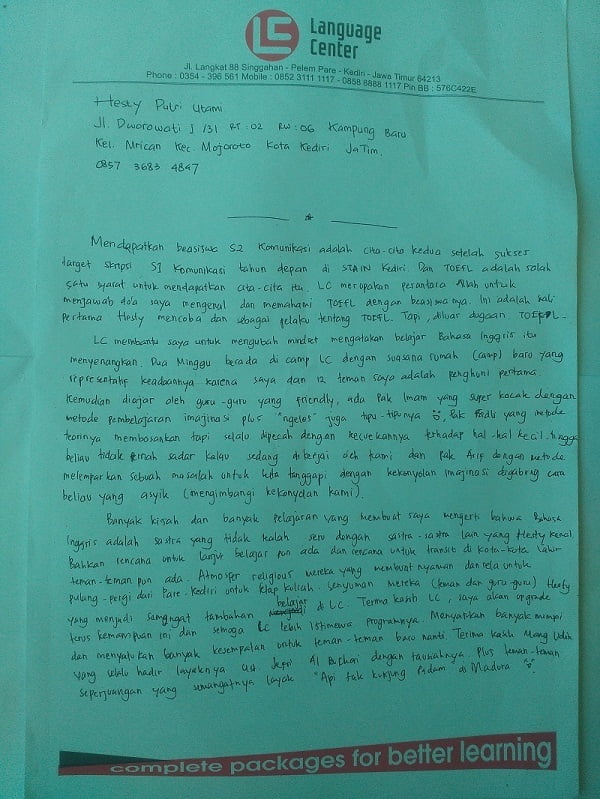 LC Language
Center
Jl. Langkat 88 Singgahan - Pelem Pare - Kediri - Jawa Timur 64213
Phone : 0354 - 396 561 Mobile : 0852 3111 1117 - 0858 8888 1117 Pin BB : 576C422E
Hesty Putri Utami
Jl. Dworowati J /31 RT : 02 RW : 06 Kampung Baru
Kel. Mrican Kec. Mojoroto Kota Kediri JaTim.
0857 3683 4847
Mendapatkan beasiswa S2 Komunikasi adalah cita-cita kedua setelah sukses
target skripsi S1 Komunikasi tahun depan di STAIN Kediri. Dan TOEFL adalah salah
satu syarat untuk mendapatkan cita-cita itu. LC merupakan perantara Allah untuk
menjawab do'a saya mengenal dan memahami TOEFL dengan beasiswanya. Ini adalah kali
pertama Hesty mencoba dan sebagai pelaku tentang TOEFL. Tapi, diluar dugaan TOEFL -
LC membantu saya untuk mengubah mindset mengatakan belajar Bahasa Inggris itu
menyenangkan. Dua Minggu berada di camp LC dengan suasana rumah (camp) baru yang
representatif keadaannya karena saya dan 12 teman saya adalah penghuni pertama.
Kemudian diajar oleh guru-guru yang friendly, ada Pak Imam yang super kocak dengan
metode pembelajaran imajinasi plus "ngeles" juga tipu-tipunya, Pak Fadli yang metode
teorinya membosankan tapi selalu dipecah dengan kecuekannya terhadap hal-hal kecil, hingga
beliau tidak pernah sadar kalau sedang dikerjai oleh kami dan Pak Arif dengan metode
melemparkan sebuah masalah untuk kita tanggapi dengan kekonyolan imajinasi digabung cara
beliau yang asyik (mengimbangi kekonyolan kami).
Banyak kisah dan banyak pelajaran yang membuat saya mengerti bahwa Bahasa
Inggris adalah sastra yang tidak kalah seru dengan sastra-sastra lain yang Hesty kenal.
Bahkan rencana untuk lanjut belajar pun ada dan rencana untuk transit di kota-kota lahir
teman-teman pun ada. Atmosfer religious mereka yang membuat nyaman dan rela untuk
pulang-pergi dari Pare-Kediri untuk tetap kuliah. Senyuman mereka (teman dan guru-guru) Hesty
yang menjadi semangat tambahan belajar di LC. Terima kasih LC, saya akan upgrade
terus kemampuan ini dan semoga LC lebih istimewa programnya. Menyatukan banyak mimpi
dan menyatukan banyak kesempatan untuk teman-teman baru nanti. Terima kasih Mang Udin
yang selalu hadir layaknya Ust Jepri Al Bukhori dengan tausiahnya. Plus teman-teman
seperjuangan yang semangatnya layak "Api tak kunjung Padam di Madura"
complete packages for better learning